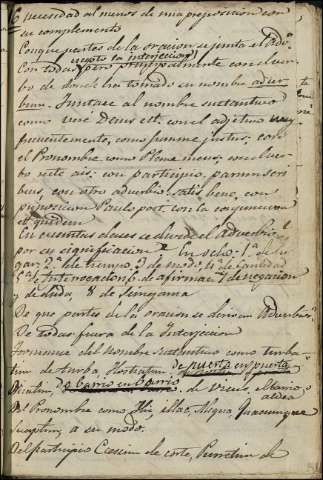 necesidad al menos de una preposicion con
su complemento
Con que partes de la oracion se junta el Adv.º
excepto la interjeccion
Con todas pero principalmente con el ver-
bo de donde ha tomado su nombre adver-
bium. Juntase al nombre sustantivo
como vere Deus est, con el adjetivo muy
frecuentemente, como summe justus, con
el Pronombre como Plane meus, con el ver-
bo recte ais: con participio, parum
con otro adverbio satis bene, con
preposicion Paulo post, con la conjuncion
et quidem
En cuantas clases se divide el Adverbio
por su significacion En ocho: 1.ª de lu-
gar 2.ª de tiempo 3.ª de modo 4.ª de cantidad
5.ª de Interrogacion 6 de afirmar 7 de negacion
y de duda, 8 de Semejanza
De que partes de la oracion se derivan Adverbios
De todas fuera de la Interjeccion
Forman se del Nombre sustantivo como turba-
tim de turba, Hostiatim de puerta en puerta
Vicatim, de barrio en barrio de Vicus
aldea
Del Pronombre como Hic, illac,
a su modo.
Del participio Cæsim de corte, de